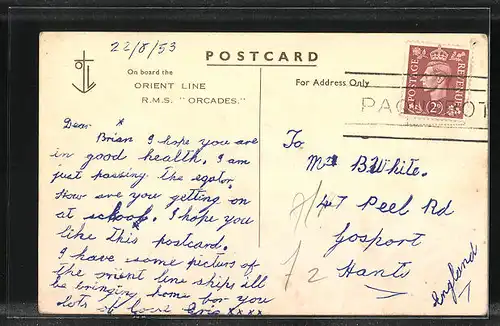 22/8/53
POSTCARD
On board the
ORIENT LINE
R.M.S. "ORCADES."
For Address Only
POSTAGE
REVENUE
2D
Dear
Brian I hope you are
in good health. I am
just passing the egator.
How are you getting on
at school. I hope you
like this postcard.
I have some pictures of
the orient line ships ill
be bringing home for you
lots of love Eric xxxx
To
B. White.
47 Peel Rd
Gosport
Hants
England